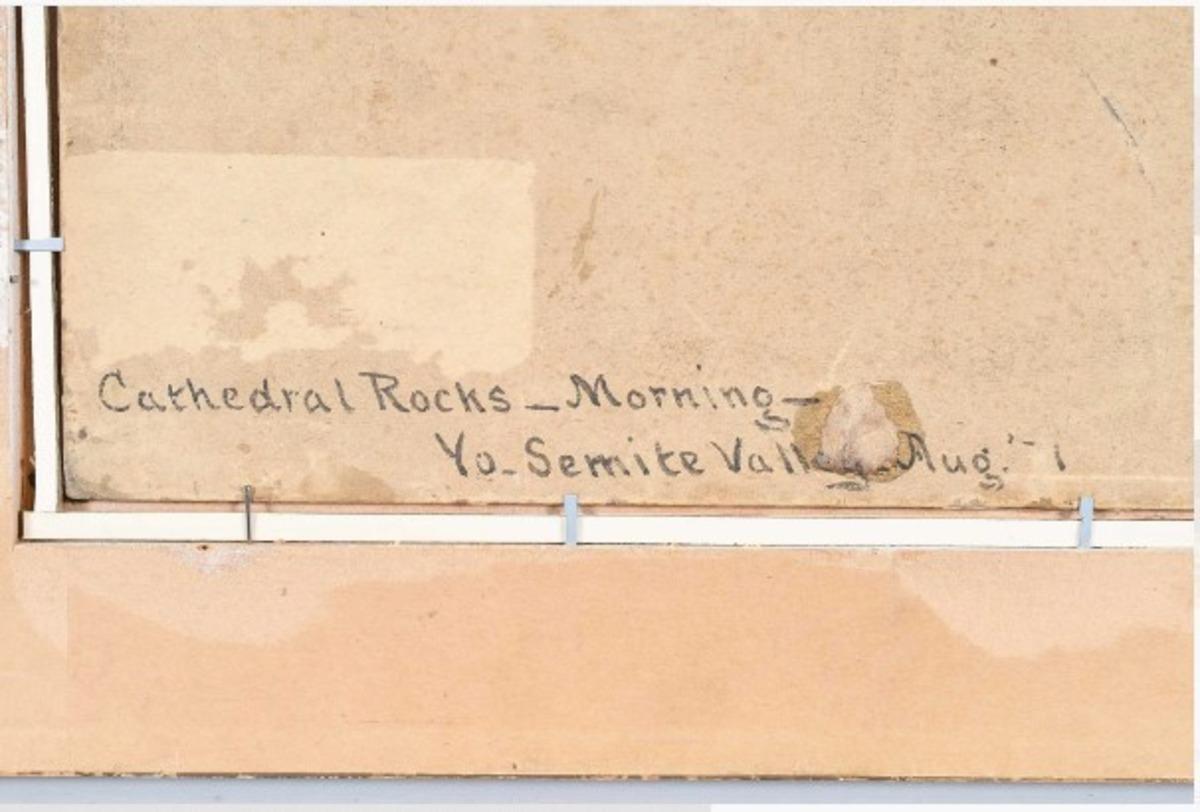 Cathedral Rocks – Morning –
Yo-Semite Valley Aug. - 1